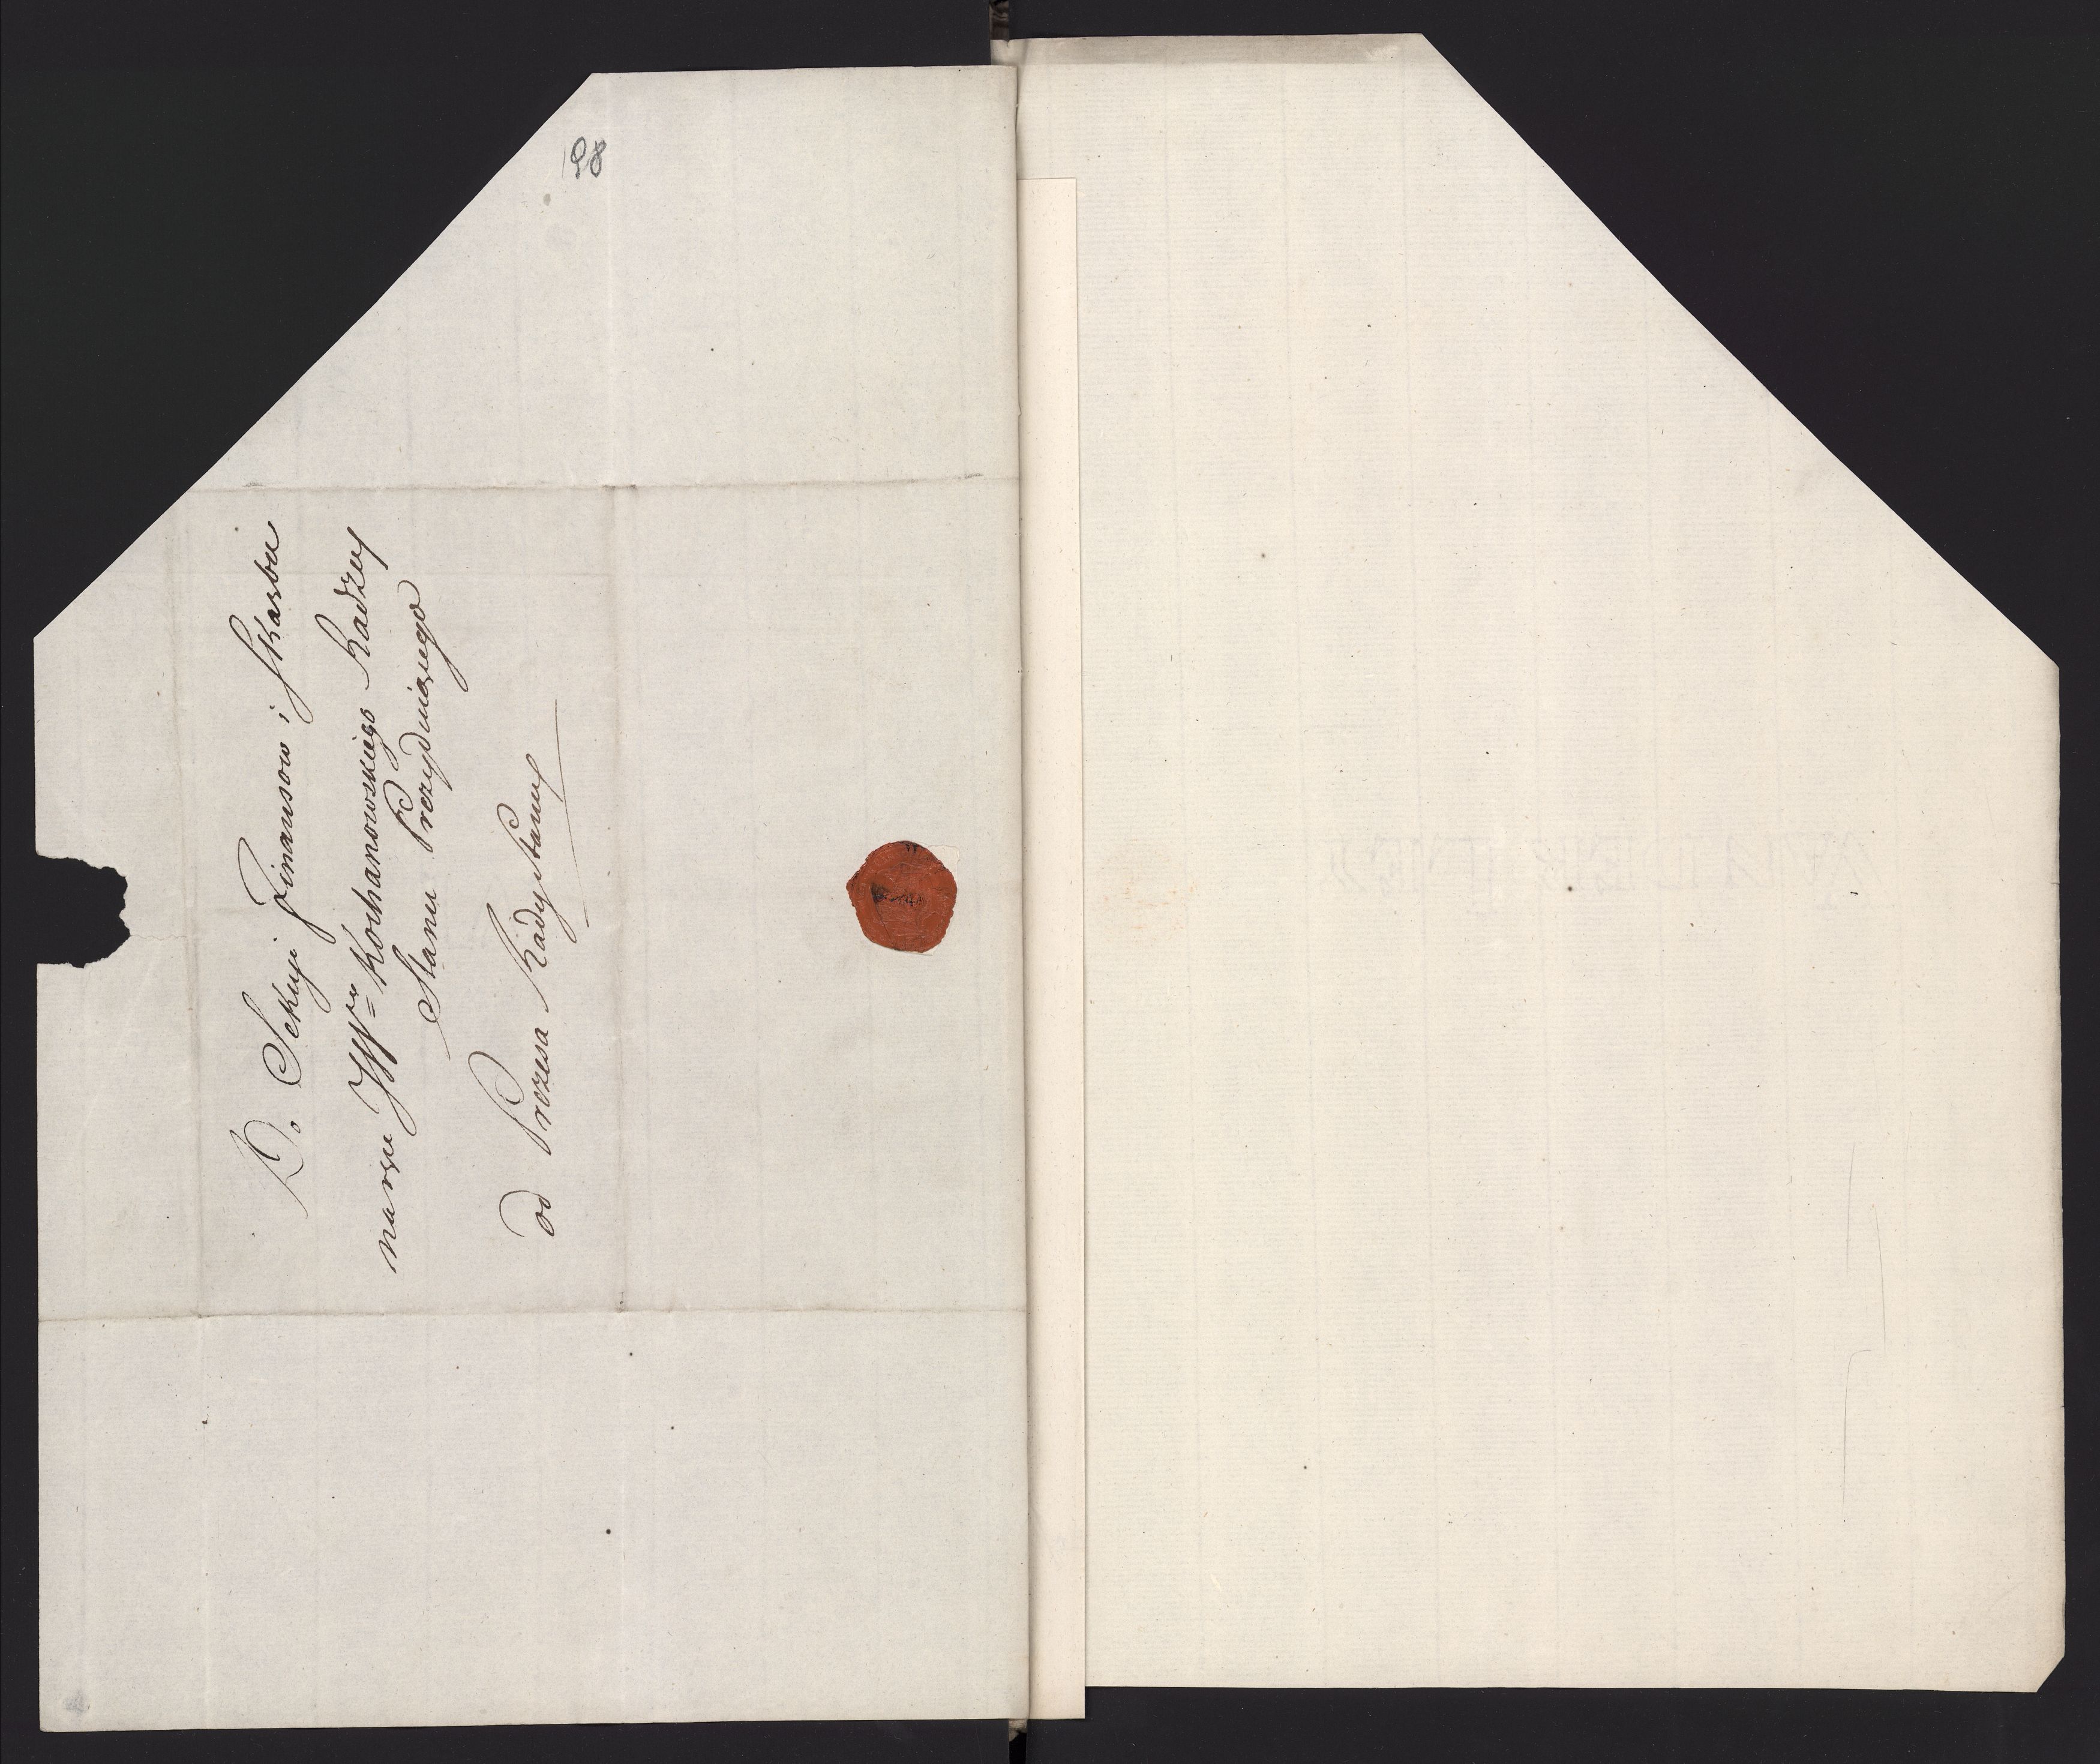 198
Do Sekcyi Finansow i Skarbu
na ręce JW° Kochanowskiego Radzcy
Stanu Prezyduiącego
od Prezesa Rady Stanu